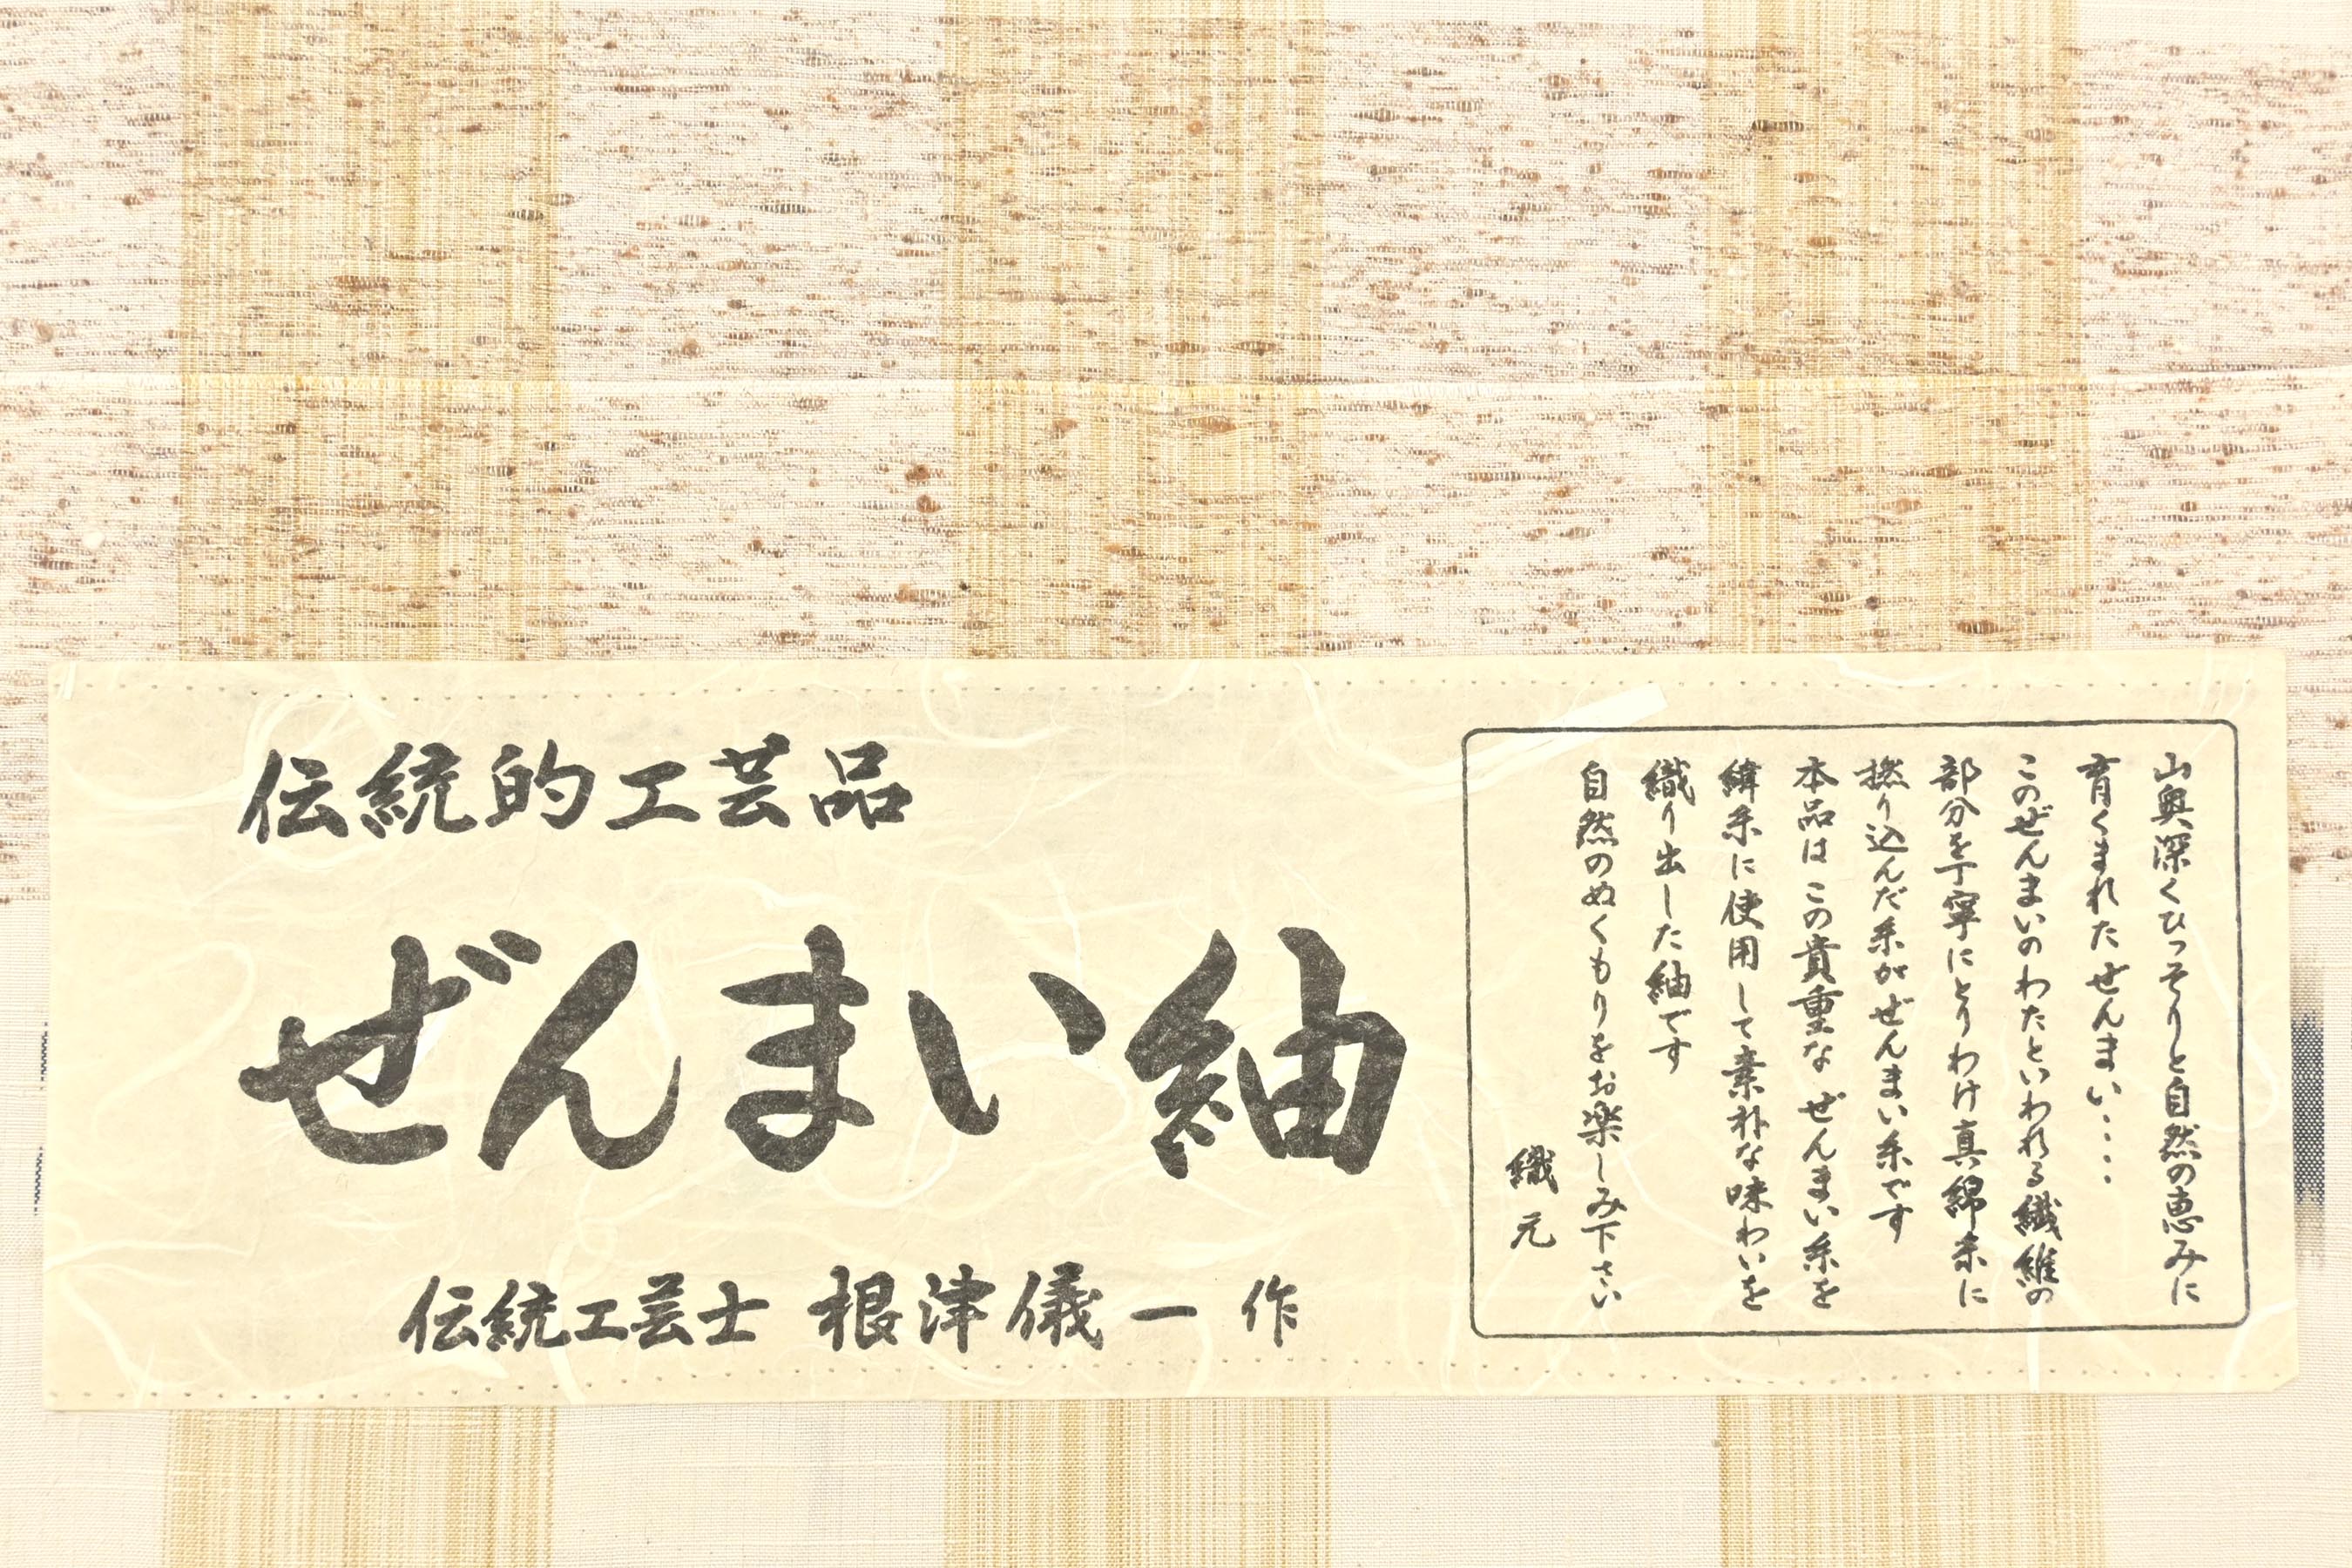 伝統的工芸品
ぜんまい紬
伝統工芸士 根津儀一 作
山奥深くひっそりと自然の恵みに
育くまれたぜんまい・・・・
このぜんまいのわたといわれる繊維の
部分を丁寧にとりわけ真綿糸に
撚り込んだ糸がぜんまい糸です
本品はこの貴重なぜんまい糸を
緯糸に使用して素朴な味わいを
織り出した紬です
自然のぬくもりをお楽しみ下さい
織元